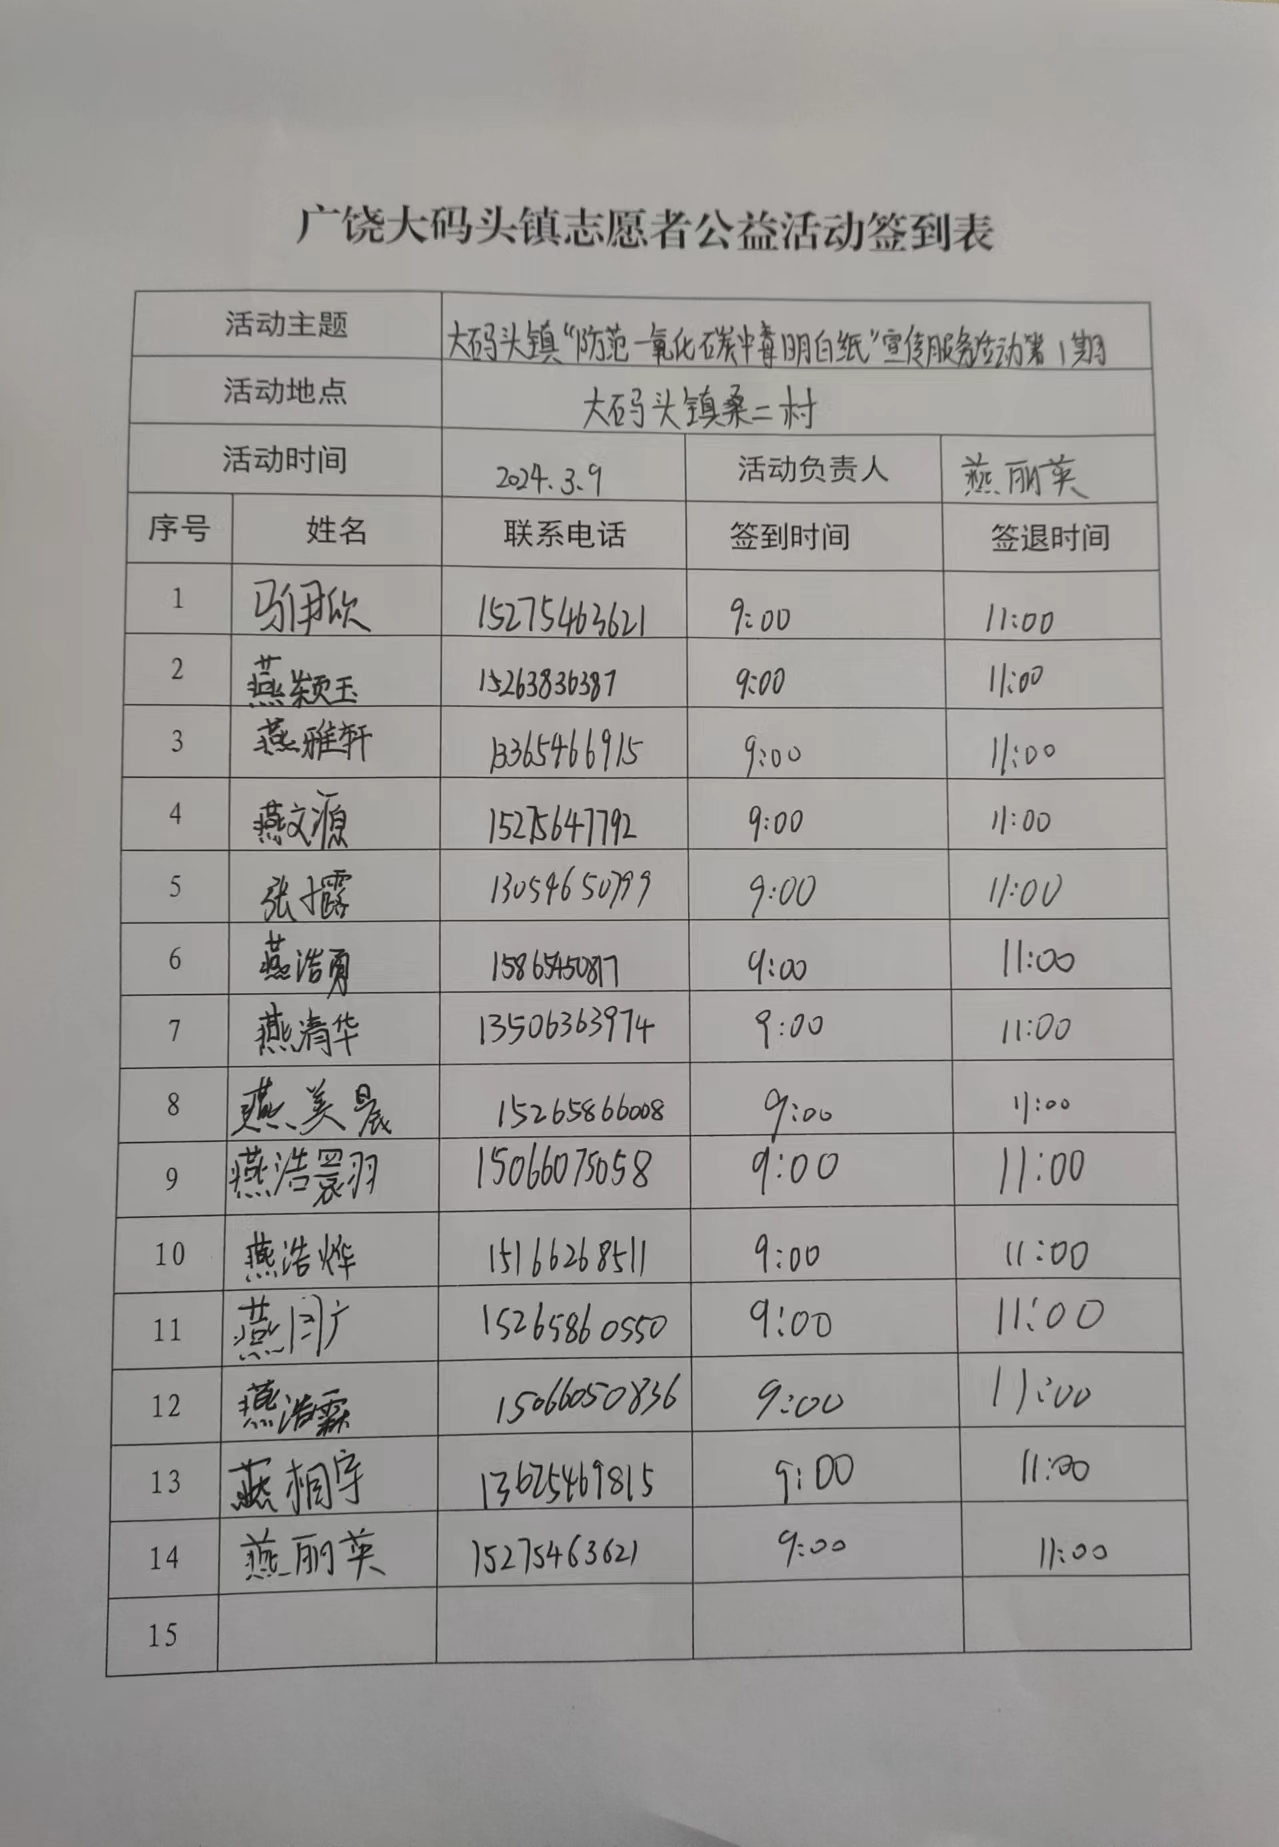 广饶大码头镇志愿者公益活动签到表
活动主题 大码头镇“防范一氧化碳中毒明白纸”宣传服务活动第1期
活动地点 大码头镇桑二村
活动时间 2024.3.9 活动负责人 燕丽英
序号 姓名 联系电话 签到时间 签退时间
1 马伊欣 15275463621 9:00 11:00
2 燕颖玉 15263836387 9:00 11:00
3 燕雅轩 13365466915 9:00 11:00
4 燕文源 15275647792 9:00 11:00
5 张露 13054650799 9:00 11:00
6 燕浩勇 15865450817 9:00 11:00
7 燕清华 13506363974 9:00 11:00
8 燕美晨 15265866008 9:00 11:00
9 燕浩羽 15066075058 9:00 11:00
10 燕浩烨 15166268511 9:00 11:00
11 燕广 15265860550 9:00 11:00
12 燕浩霖 15066050836 9:00 11:00
13 燕相宇 13675469815 9:00 11:00
14 燕丽英 15275463621 9:00 11:00
15